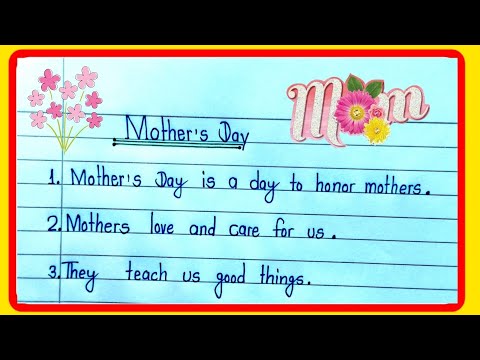 Mom
Mother's Day
1. Mother's Day is a day to honor mothers.
2. Mothers love and care for us.
3. They teach us good things.